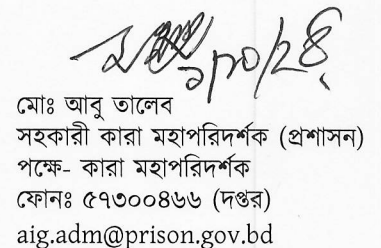 মোঃ আবু তালেব
সহকারী কারা মহাপরিদর্শক (প্রশাসন)
পক্ষে- কারা মহাপরিদর্শক
ফোনঃ ৫৭৩০০৪৬৬ (দপ্তর)
aig.adm@prison.gov.bd